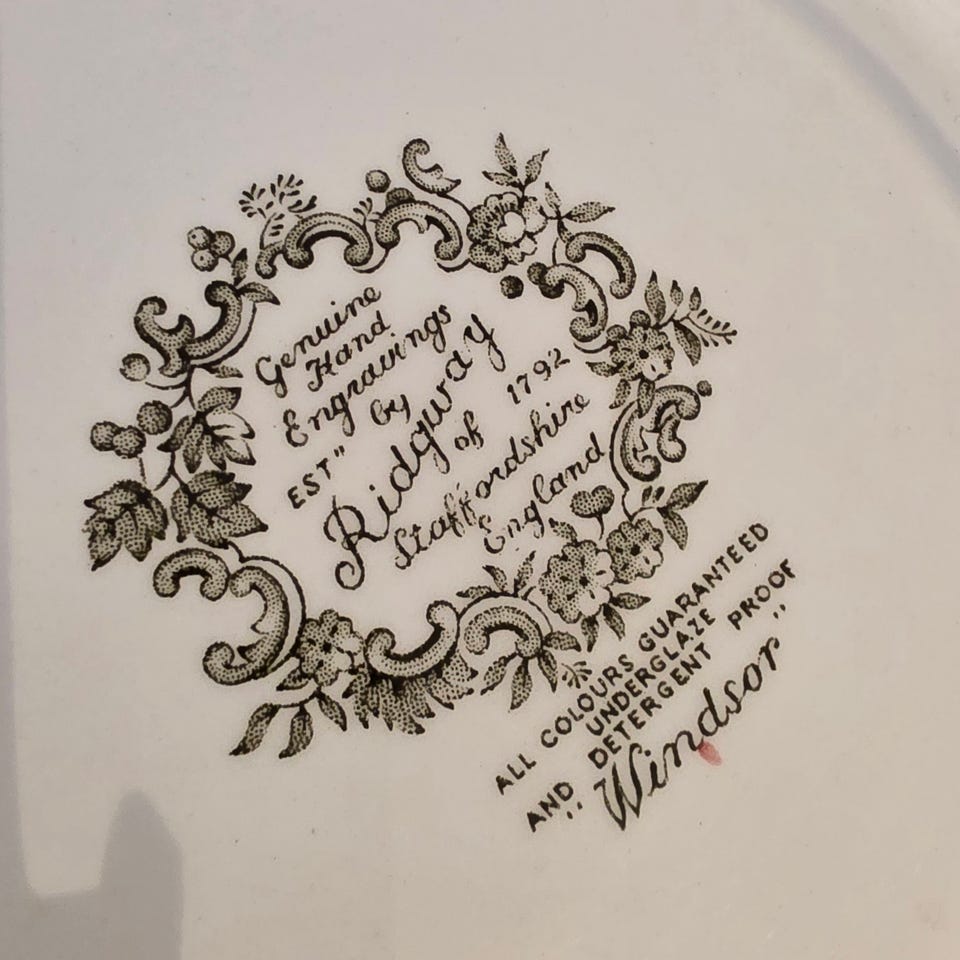 Genuine
Hand
Engravings
by
EST" Ridgway 1792
of
Staffordshire
England
ALL COLOURS GUARANTEED
UNDERGLAZE
AND DETERGENT PROOF
"Windsor"